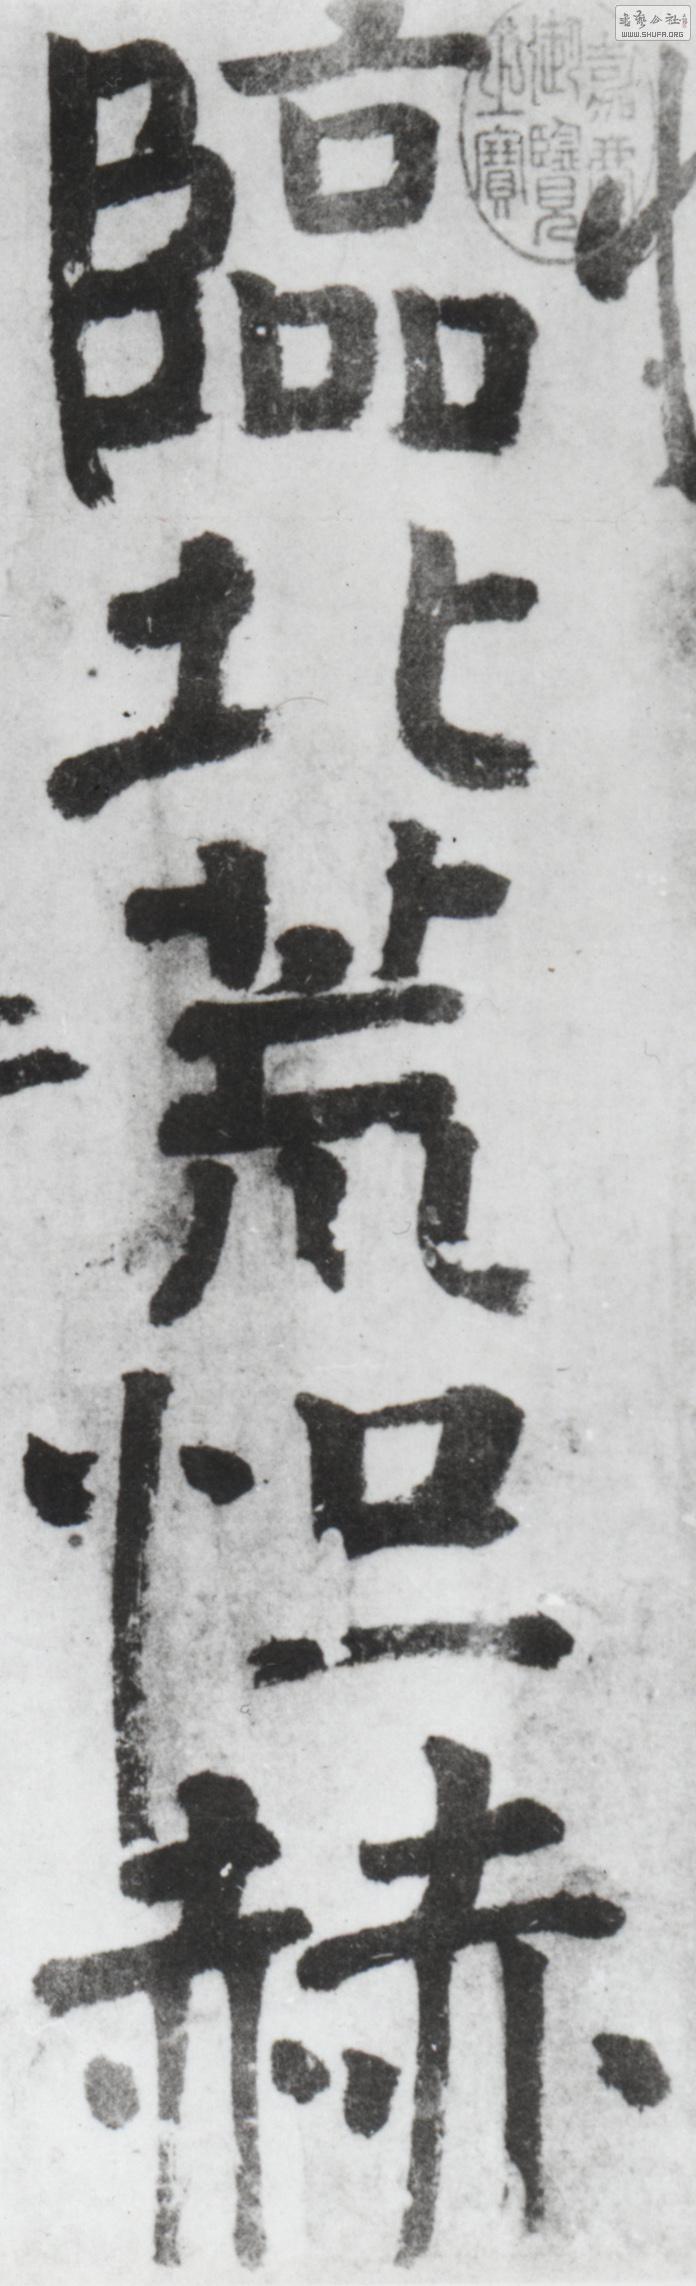 嘉慶御覽之寶
臨北荒怛赫
書藝公社
WWW.SHUFA.ORG